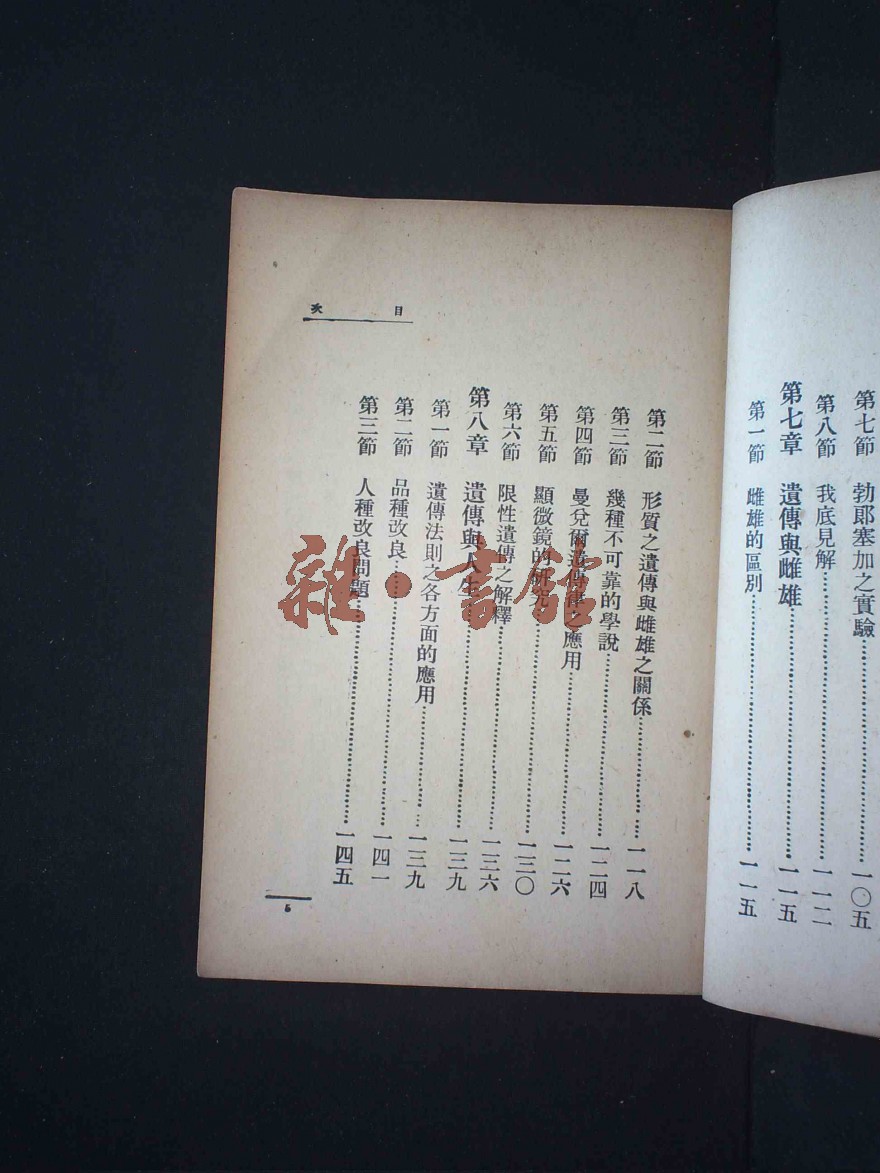 第七節　勃郎塞加之實驗……一〇五
第八節　我底見解……一一二
第七章　遺傳與雌雄……一一五
第一節　雌雄的區別……一一五
目次
第二節　形質之遺傳與雌雄之關係……一一八
第三節　幾種不可靠的學說……一二四
第四節　曼兌爾遺傳律之應用……一二六
第五節　顯微鏡的研究……一三〇
第六節　限性遺傳之解釋……一三六
第八章　遺傳與人生……一三九
第一節　遺傳法則之各方面的應用……一三九
第二節　品種改良……一四一
第三節　人種改良問題……一四五
5
雜·書館